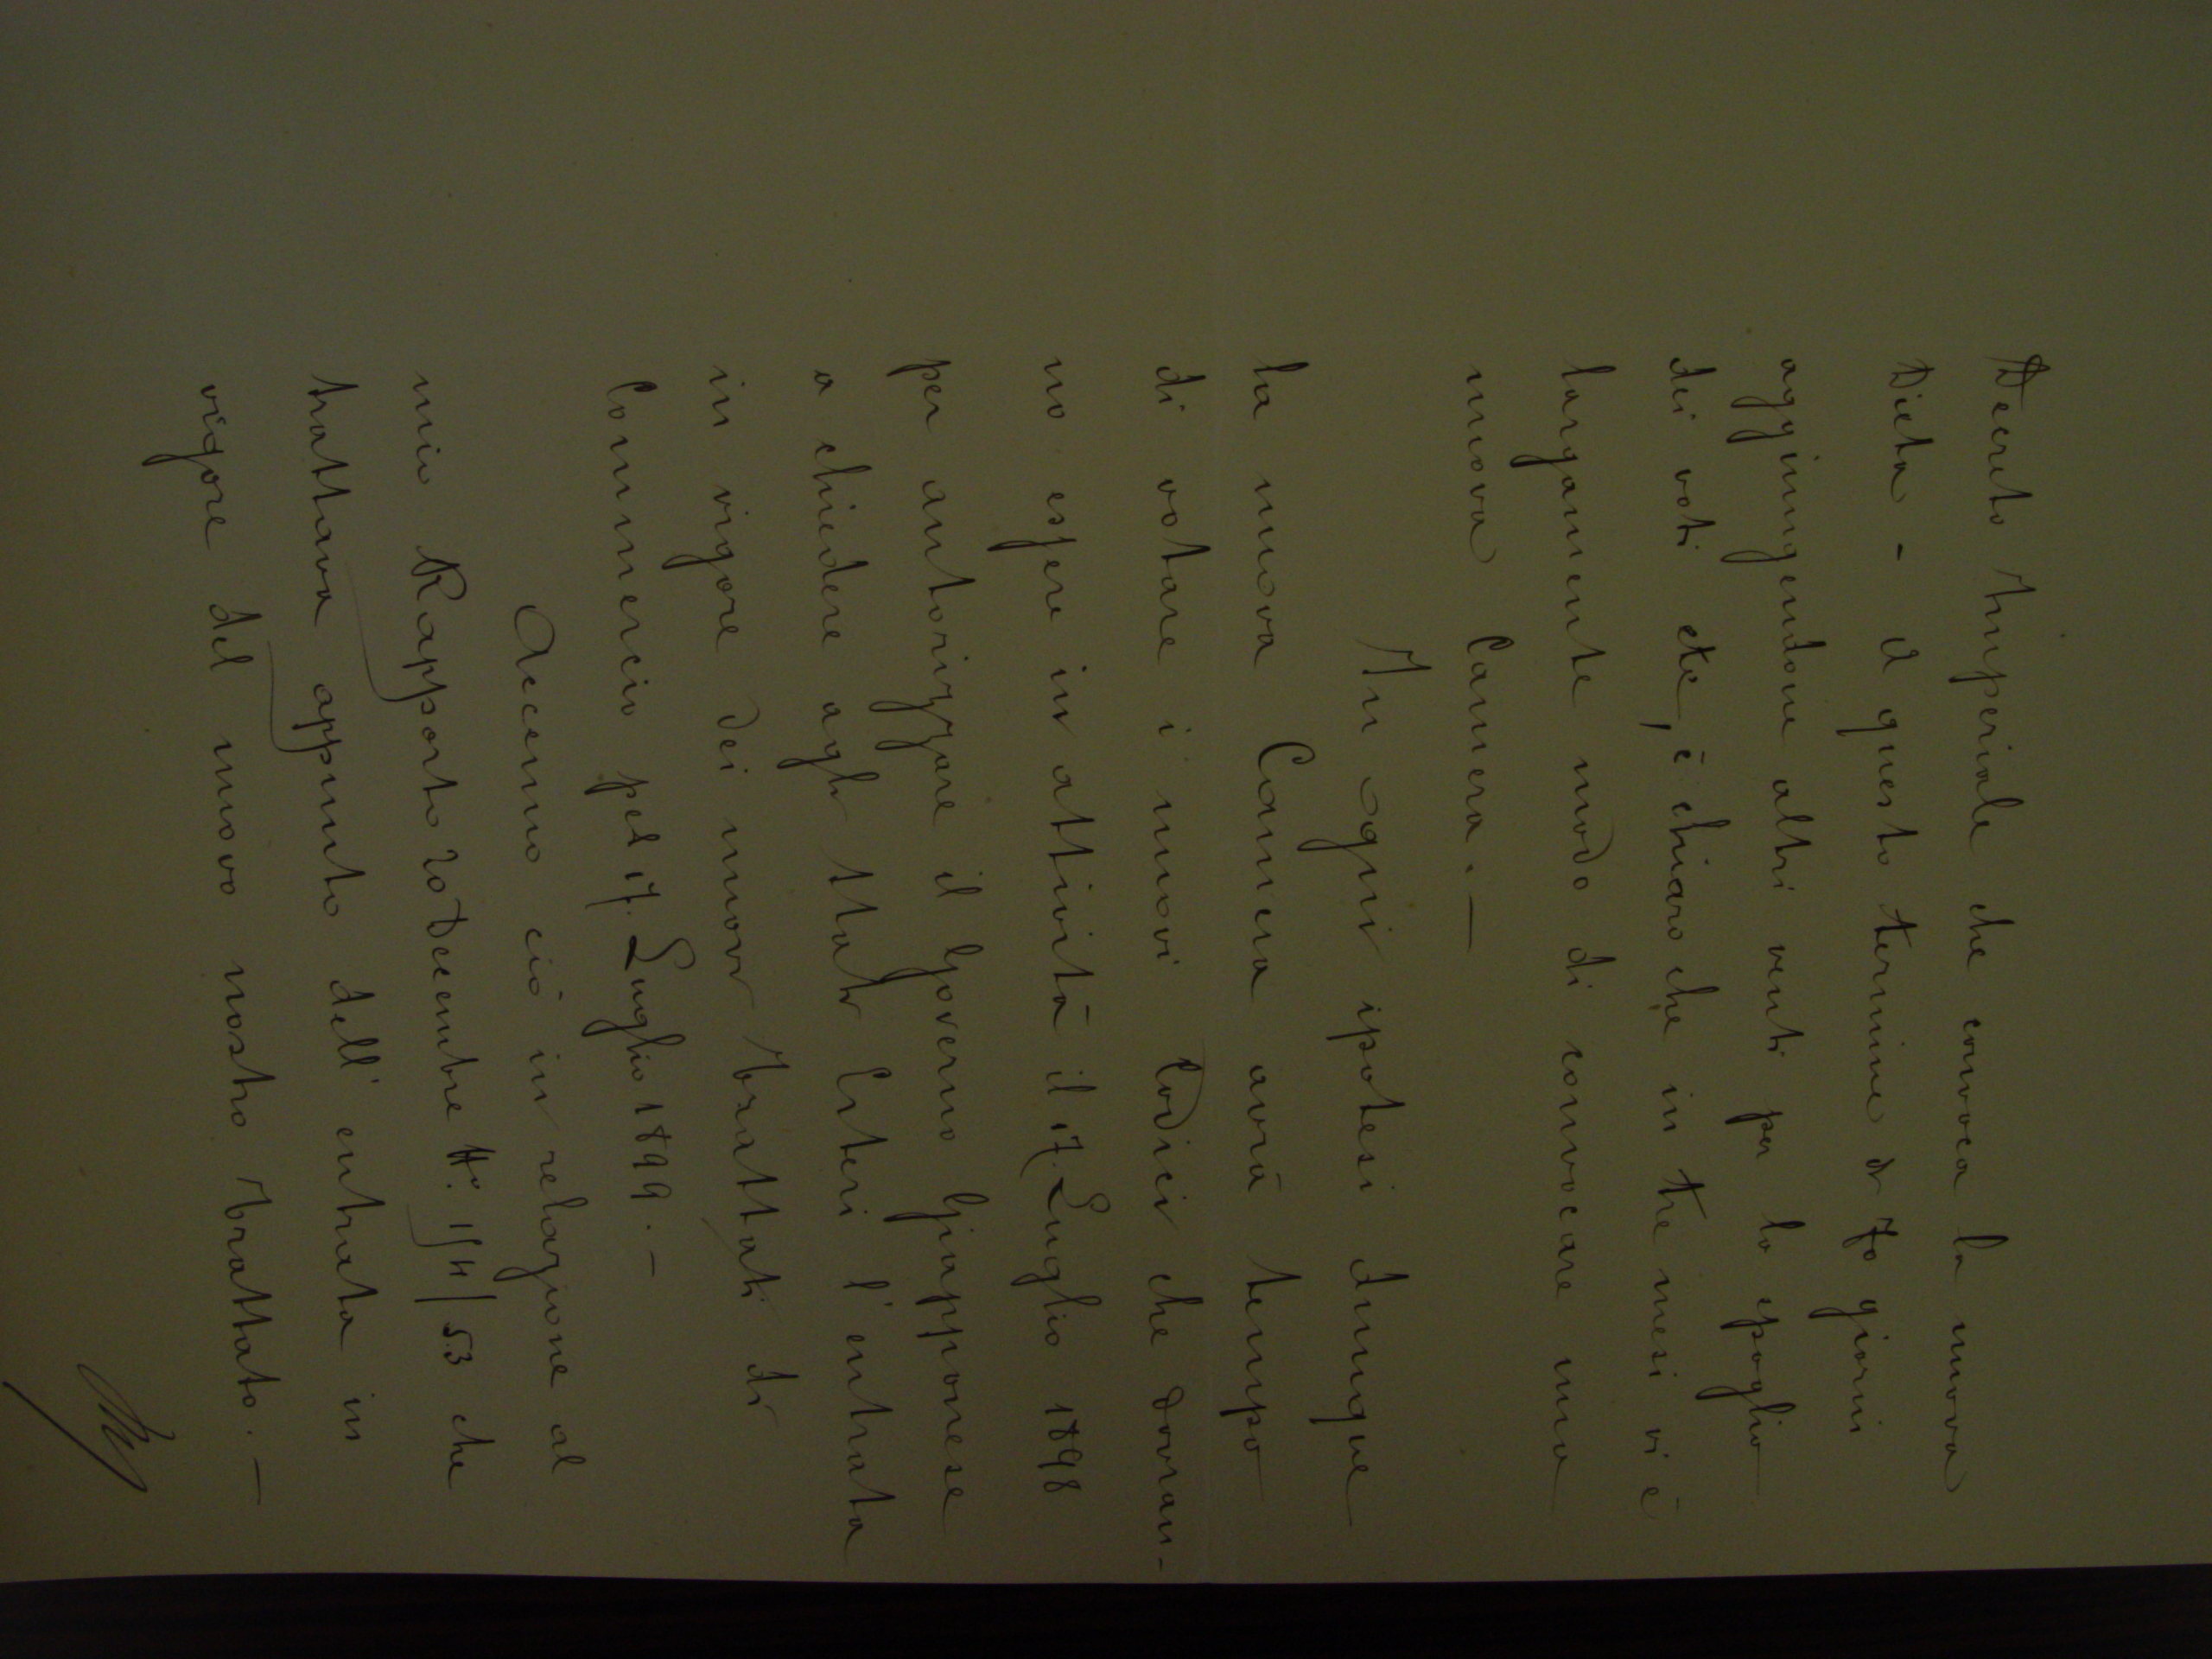 Decreto Imperiale che convoca la nuova
Dieta - A questo termine di 70 giorni
aggiungendone altri venti per lo spoglio
dei voti etc, è chiaro che in tre mesi vi è
largamente modo di convocare una
nuova Camera. —
In ogni ipotesi dunque
la nuova Camera avrà tempo
di votare i nuovi Codici che dovran-
no essere in attività il 17. Luglio 1898
per autorizzare il Governo Giapponese
a chiedere agli Stati Esteri l'entrata
in vigore dei nuovi Trattati di
Commercio pel 17. Luglio 1899. —
Accenno ciò in relazione al
mio Rapporto 20 Decembre No. 154/53 che
trattava appunto dell'entrata in
vigore del nuovo nostro Trattato. —